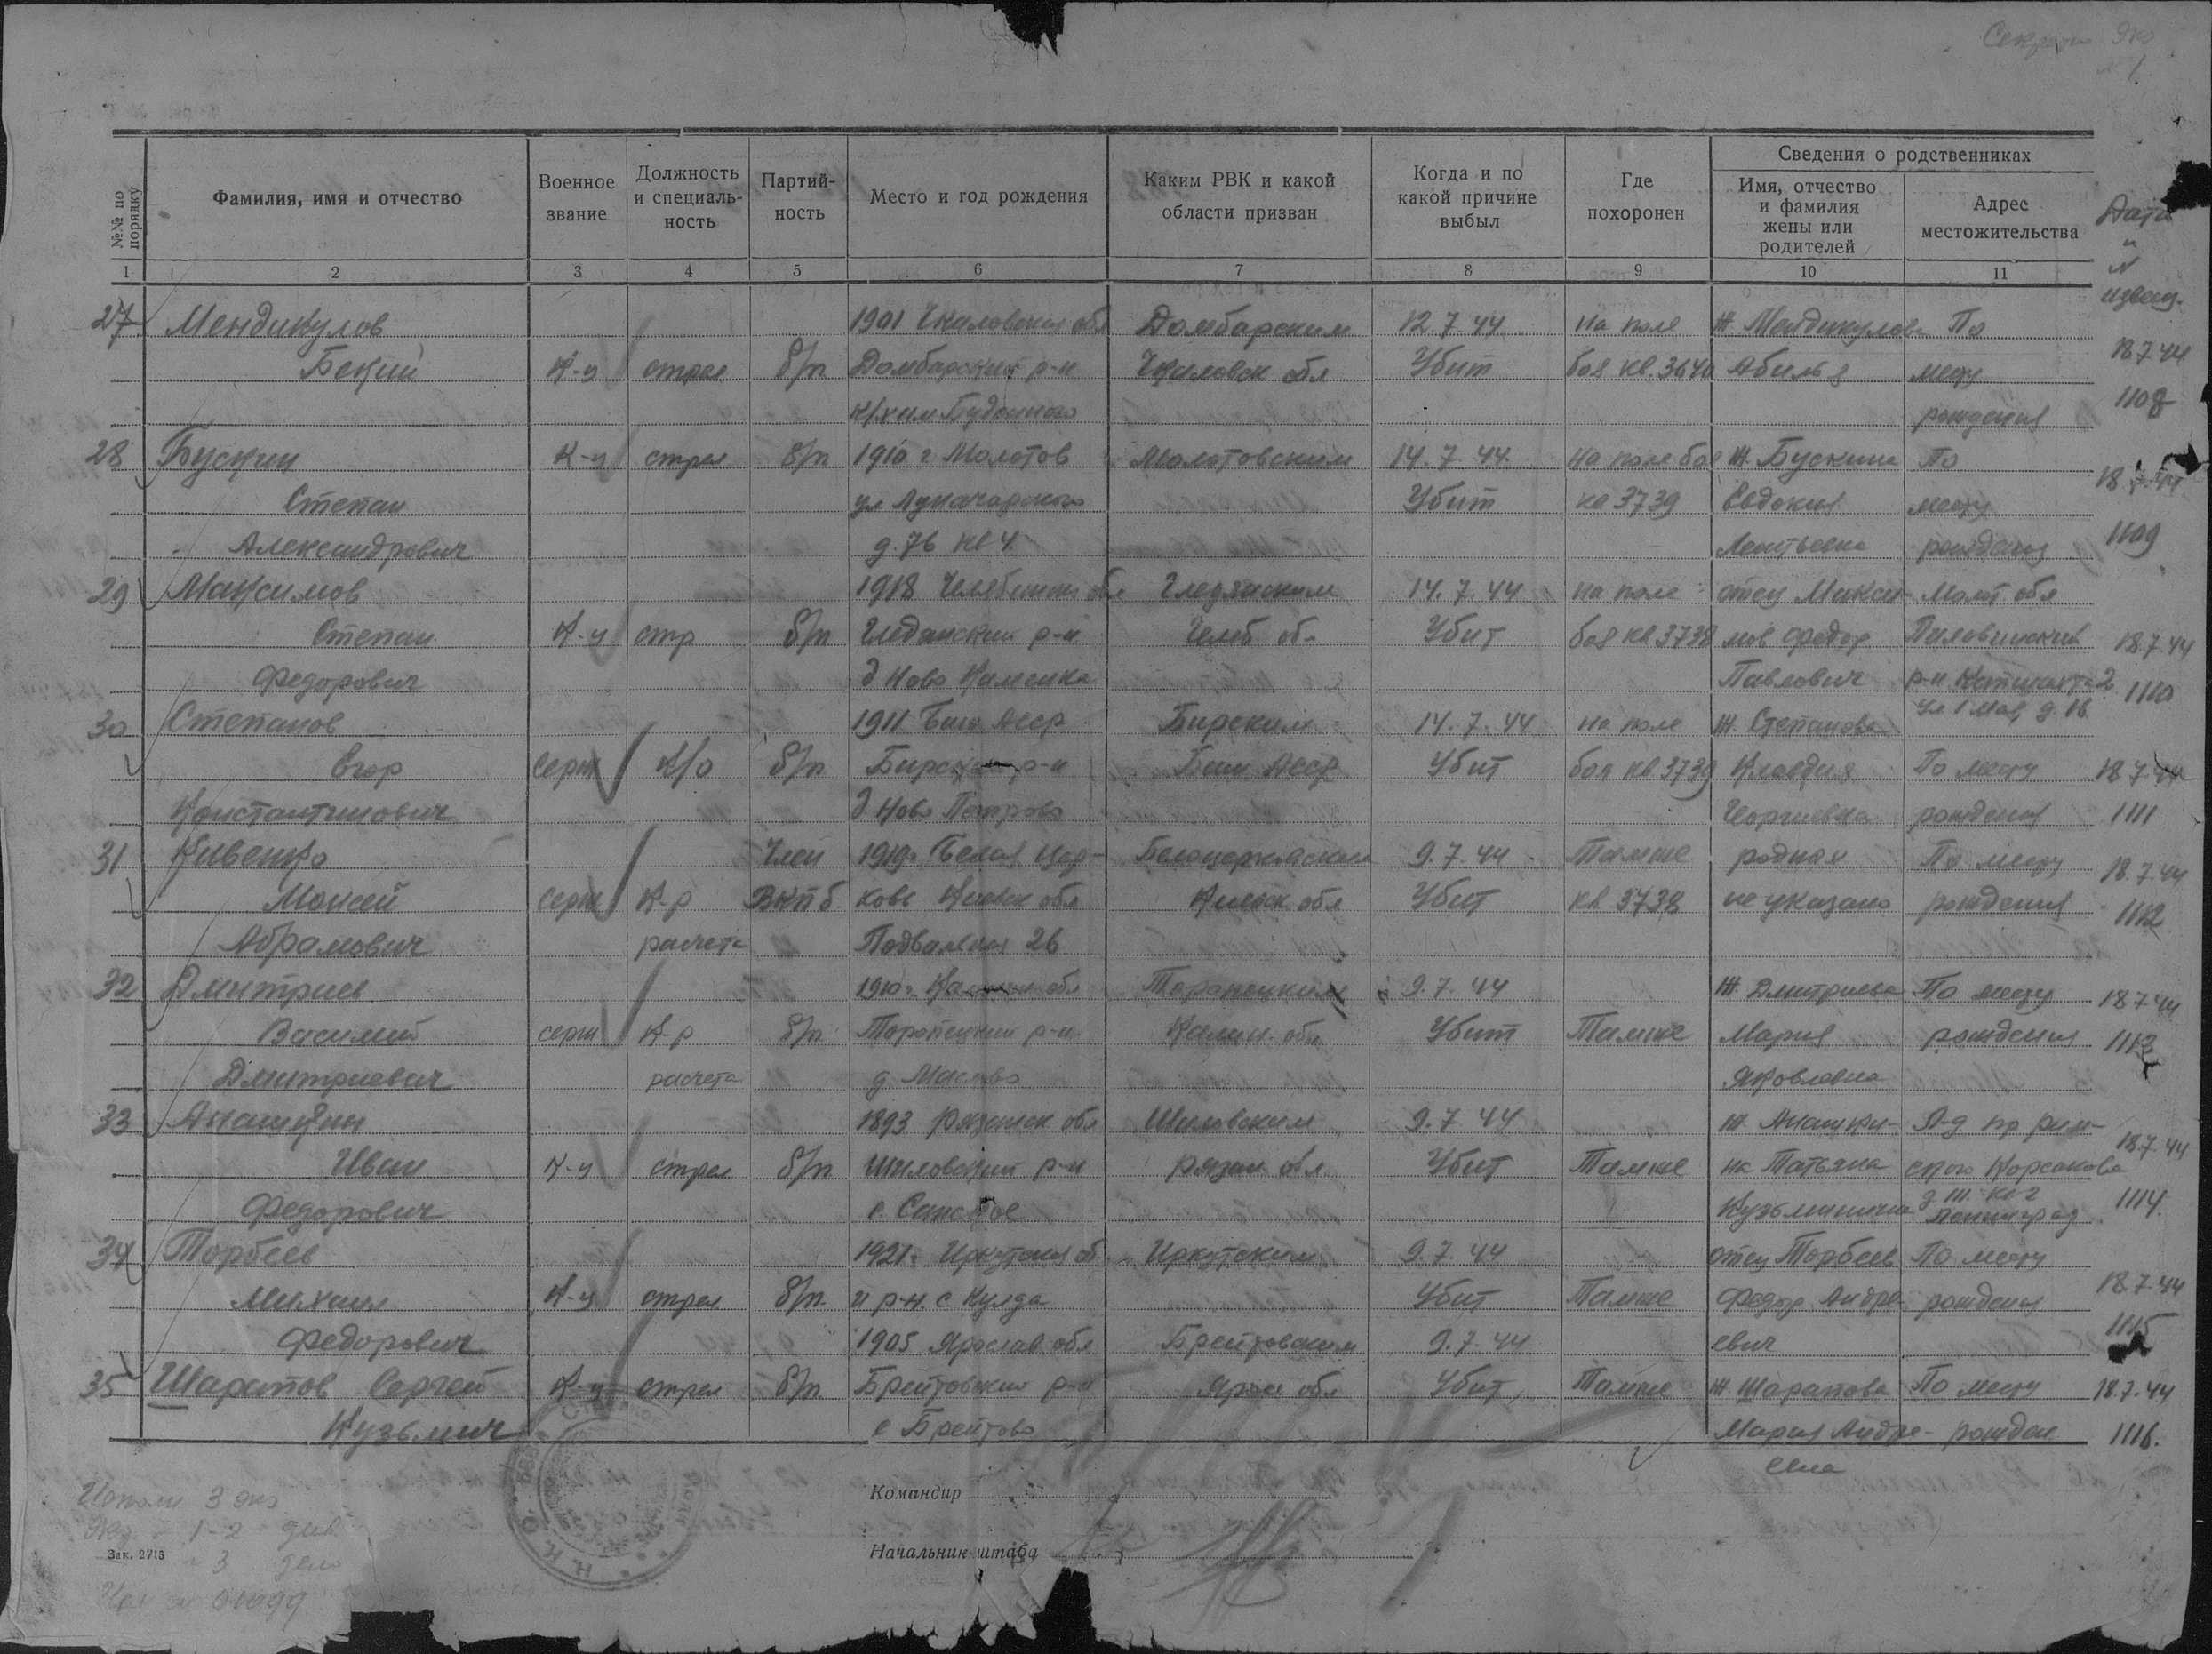 Секретно Экз
1
№№ по порядку
Фамилия, имя и отчество
Военное звание
Должность и специальность
Партийность
Место и год рождения
Каким РВК и какой области призван
Когда и по какой причине выбыл
Где похоронен
Сведения о родственниках
Имя, отчество и фамилия жены или родителей
Адрес местожительства
Дата и N извещ.
1 2 3 4 5 6 7 8 9 10 11
27 Мендикулов 1901 Чкаловская обл Домбарским 12.7.44 на поле Ж. Мендикулова По
Бекий К-ц стрел б/п Домбарский р-н Чкаловск обл Убит боя кв. 3640 Абиля месту 18.7.44
к/х им Буденного рождения 1108
28 Бускин К-ц стрел б/п 1910 г Молотов Молотовским 14.7.44 на поле боя Ж. Бускина По
Степан ул Луначарского Убит кв 3739 Евдокия месту 18.7.44
Александрович д. 76 кв 4. Леонтьевна рождения 1109
29 Максимов 1918 Челябинск обл 14.7.44 на поле отец Макси- Молот. обл
Степан К-ц стр б/п р-н Челяб обл Убит боя кв 3738 мов Федор 18.7.44
Федорович д Ново Каменка Павлович р-н 2 1110
ул 1 Мая д. 16
30 Степанов 1911 Баш Асср Бирским 14.7.44 на поле Ж. Степанова
Егор серж к/о б/п Бирский р-н Баш Асср Убит боя кв 3739 Клавдия По месту 18.7.44
Константинович д Ново Петрово Георгиевна рождения 1111
31 Кивенко Член 1919г Белая Цер- Белоцерковским 9.7.44 Там же родная По месту 18.7.44
Моисей серж К-р ВКПб ковь Киевск обл Киевск обл Убит кв 3738 не указано рождения 1112
Абрамович расчета Подвальная 26
32 Дмитриев 1910г обл Торопецким 9.7.44 Ж Дмитриева По месту 18.7.44
Василий серж К-р б/п Торопецкий р-н Калин. обл Убит Там же Мария рождения 1113
Дмитриевич расчета д Яковлевна
33 Анашкин 1893 Рязанск обл Шиловским 9.7.44 ж. Анашки- Л-д пр рим-
Иван К-ц стрел б/п Шиловский р-н Рязан обл Убит Там же на Татьяна ского Корсакова 18.7.44
Федорович с Санское Кузьминична Ленинград 1114.
34 Торбеев 1921г Иркутская об Иркутским 9.7.44 отец Торбеев По месту
Михаил К-ц стрел б/п. и р-н. с Кулда Убит Там же Федор Андре- рождения 18.7.44
Федорович 1905 Ярослав обл Брейтовским 9.7.44 евич 1115
35 Шарапов Сергей К-ц стрел б/п Брейтовский р-н Яросл обл Убит Там же Ж Шарапова По месту 18.7.44
Кузьмич с Брейтово Мария Андре- рожден 1116.
евна
Командир
Начальник штаба
3 экз
1-2
3 дело
Зак. 2715